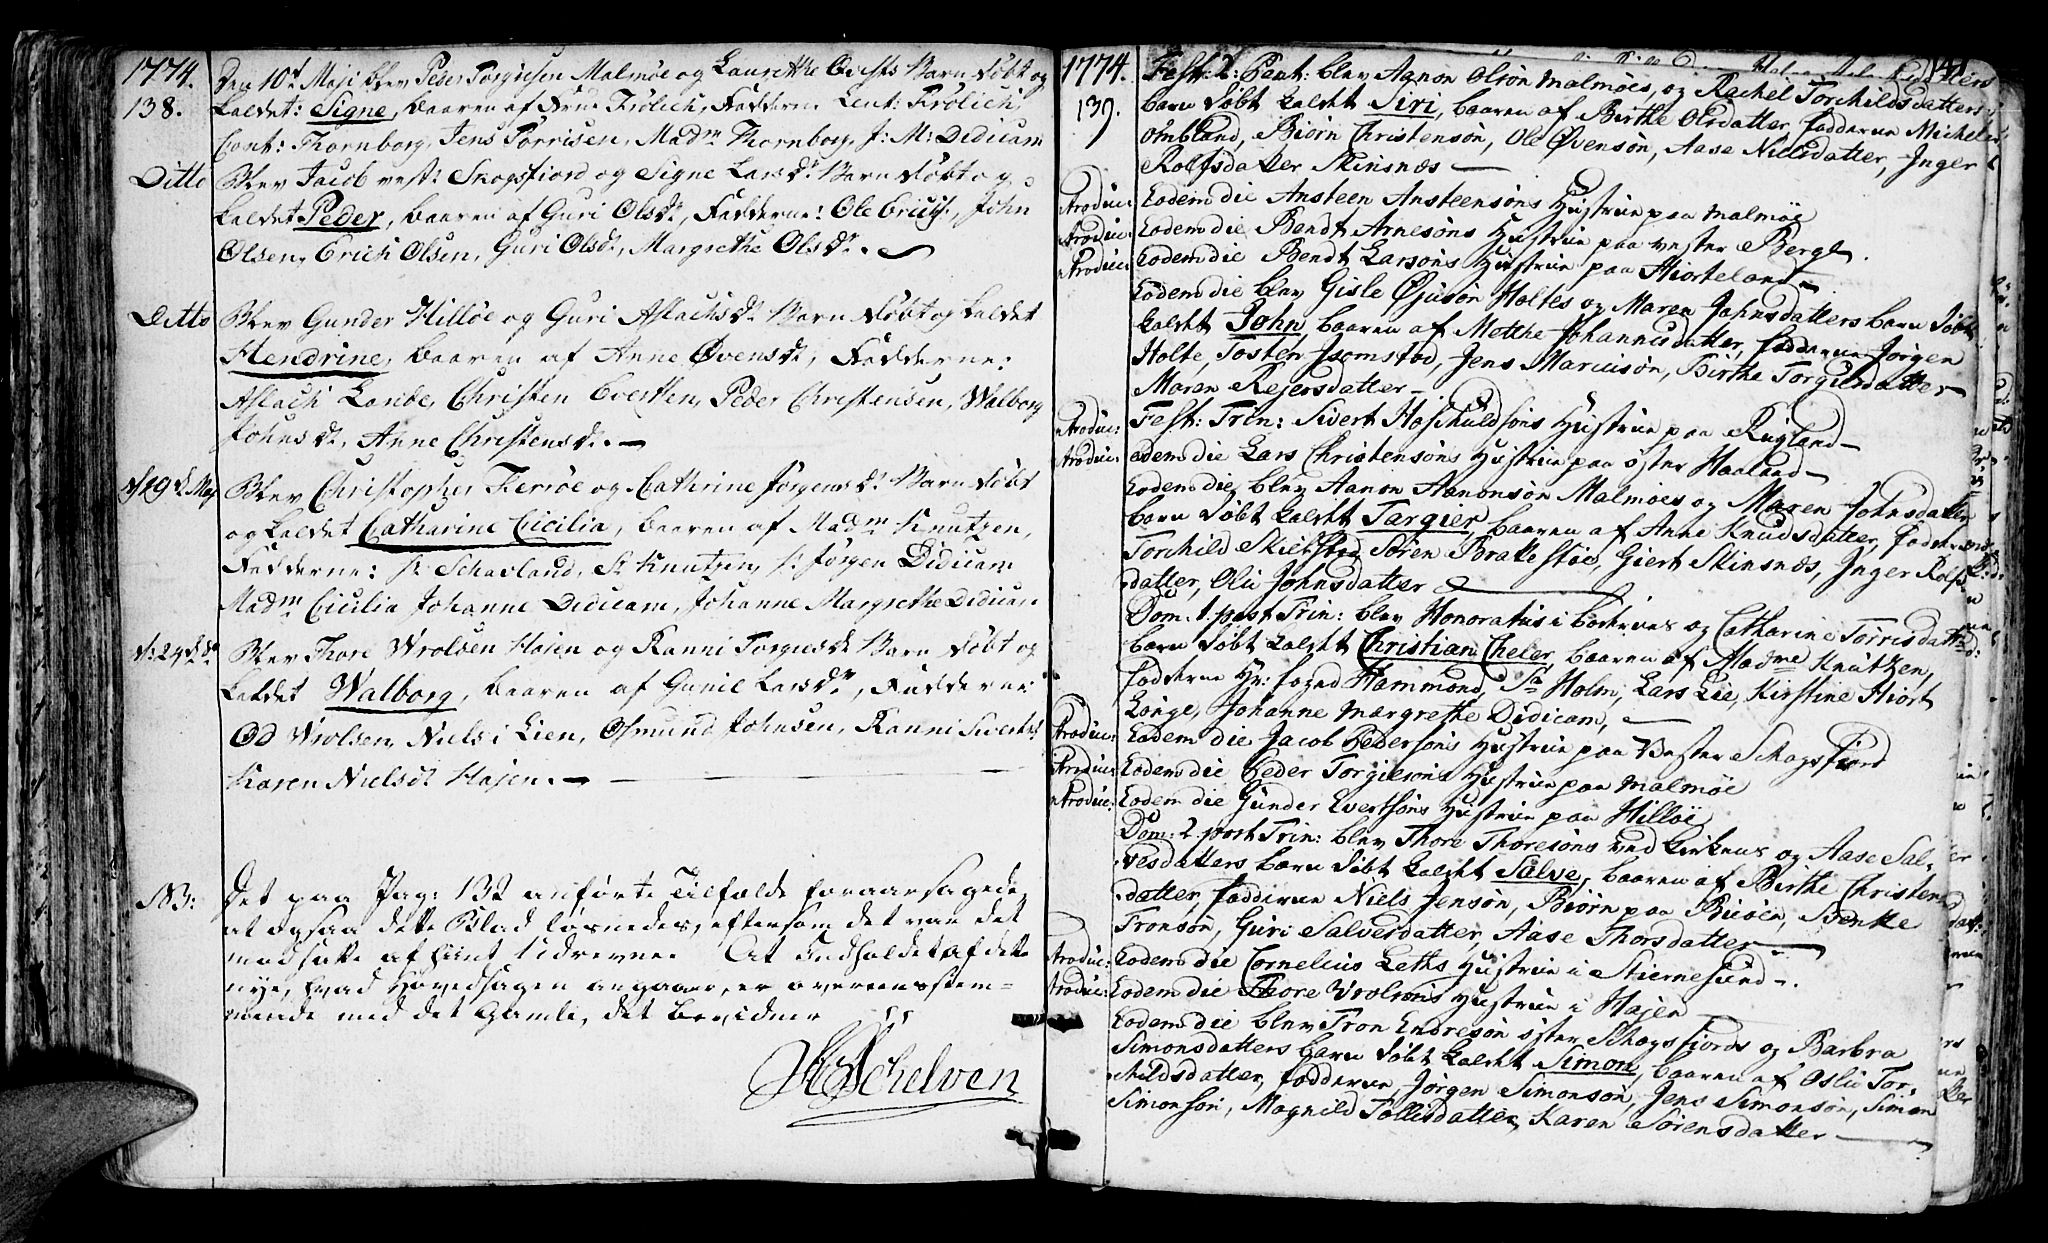 1774.
138.
Den 10d Maji blev Peder Torgiesen Malmøe og Laurethe Everts Barn døbt og
kaldet: Signe, baaren af Frue Frølich, Fadderne Lieut: Frølich,
Cont: Thornborg, Jens Torrisen, Madm Thornborg, J: M: Didicam
Ditto Blev Jacob vest: Skogsfiord og Signe Larsdr Barn døbt og
kaldet Peder, baaren af Guri Olsdr, Fadderne: Ole Erichs., John
Olsen, Erich Olsen, Guri Olsdr, Margrethe Olsdr.
Ditto Blev Gunder Hilløe og Guri Aslachsdr Barn døbt og kaldet
Hendrine, baaren af Anne Øvensdr, Fadderne:
Aslach Lande, Christen Evertsen, Peder Christensen, Walborg
Johnsdr, Anne Christensdr.
d: 19d Maj Blev Christopher Ferrøe og Cathrine Jørgensdr Barn døbt
og kaldet Catharine Cicilia, baaren af Madm Knutzen,
Fadderne: Sr Schavland, Sr Knutzen, Sr Jørgen Didicam
Madm Cicilia Johanne Didicam, Johanne Margrethe Didicam.
d: 24d do Blev Thore Wrolsen Høien og Ranni Torgusdr Barn døbt og
kaldet Walborg, baaren af Gunil Larsdr, Fadderne:
Od Wrolsen, Niels i Lien, Osmund Johnsen, Ranni Sivertsd
Karen Nielsdr Høien.
183: Det paa Pag: 132 anførte Tilfælde foraarsagede,
at ogsaa dette Blad løsnedes, eftersom det var det
modsatte af hiint udrevne. At Indholdet af dette
nye, hvad Hovedsagen angaaer, er overeensstem-
mende med det Gamle, det bevidner
Schelven
1774. Fest: 2: Pent: blev Agnon Olsøn Malmøes, og Rachel Torchildsdatters
139. barn døbt kaldet Siri, baaren af Birthe Olsdatter, fadderne Michel
Ombland, Biørn Christensøn, Ole Øvensøn, Aase Nielsdatter, Inger
Rolfsdatter Skinsnæs
Introduc: Eodem die Ansteen Ansteensøns Hustrue paa Malmøe
Introduc: Eodem die Bendt Arnesøns Hustrue paa Vester Berge.
Introduc: Eodem die Bendt Larsøns Hustrue paa Hiorteland
Eodem die blev Gisle Øjusøn Holtes og Maren Johnsdatters barn døbt
kaldet John, baaren af Metthe Johannisdatter, fadderne Jørgen
Holte, Tosten Jsomstød, Jens Marcusøn, Birthe Torgiusdatter
Maren Rejersdatter
Introduc: Fest: Trin: Sivert Hoschuldsøns Hustrue paa Rugland
Introduc: eodem die Lars Christensøns Hustrue paa Øster Haaland
Eodem die blev Aanon Aanonsøn Malmøes og Maren Johnsdatter
barn døbt kaldet Targier, baaren af Anne Knudsdatter, fadderne
Torchild Skielstød, Søren Brakestøe, Giert Skinsnæs, Inger Rolfs
datter, Olu Johnsdatter
Dom: 1. post Trin: blev Honoratus i boeknes og Catharine Torrisdatters
barn døbt kaldet Christian Cheler, baaren af Madme Knutzen,
fadderne Hr: foged Hammond, Sr Holm, Lars Lie, Kirstine Hiort
Longe, Johanne Margrethe Didicam,
Introduc: Eodem die Jacob Pedersøns Hustrue paa Vester Schogsfiord
Introduc: Eodem die Peder Torgiesøns Hustrue paa Malmøe
Introduc: Eodem die Gunder Evertsøns Hustrue paa Hilløe
Dom: 2. post Trin: blev Thore Thoresøns ved Kirkens og Aase Sal-
vesdatters barn døbt kaldet Salve, baaren af Birthe Christens
datter, fadderne Niels Jensøn, Biørn paa Buøen, Bentte
Tronsøn, Guri Salvesdatter, Aase Thorsdatter
Introduc: Eodem die Cornelius Leths Hustrue i Stiernesund.
Introduc: Eodem die Thore Wrolsøns Hustrue i Højen
Eodem die blev Tron Endresøn Øster Schogsfiords og Barbra
Simonsdatters barn døbt kaldet Simon, baaren af Oslu Tor-
childsdatter, fadderne Jørgen Simonsøn, Jens Simonsøn, Simon
Simonsøn, Magnild Tollisdatter, Karen Sørensdatter